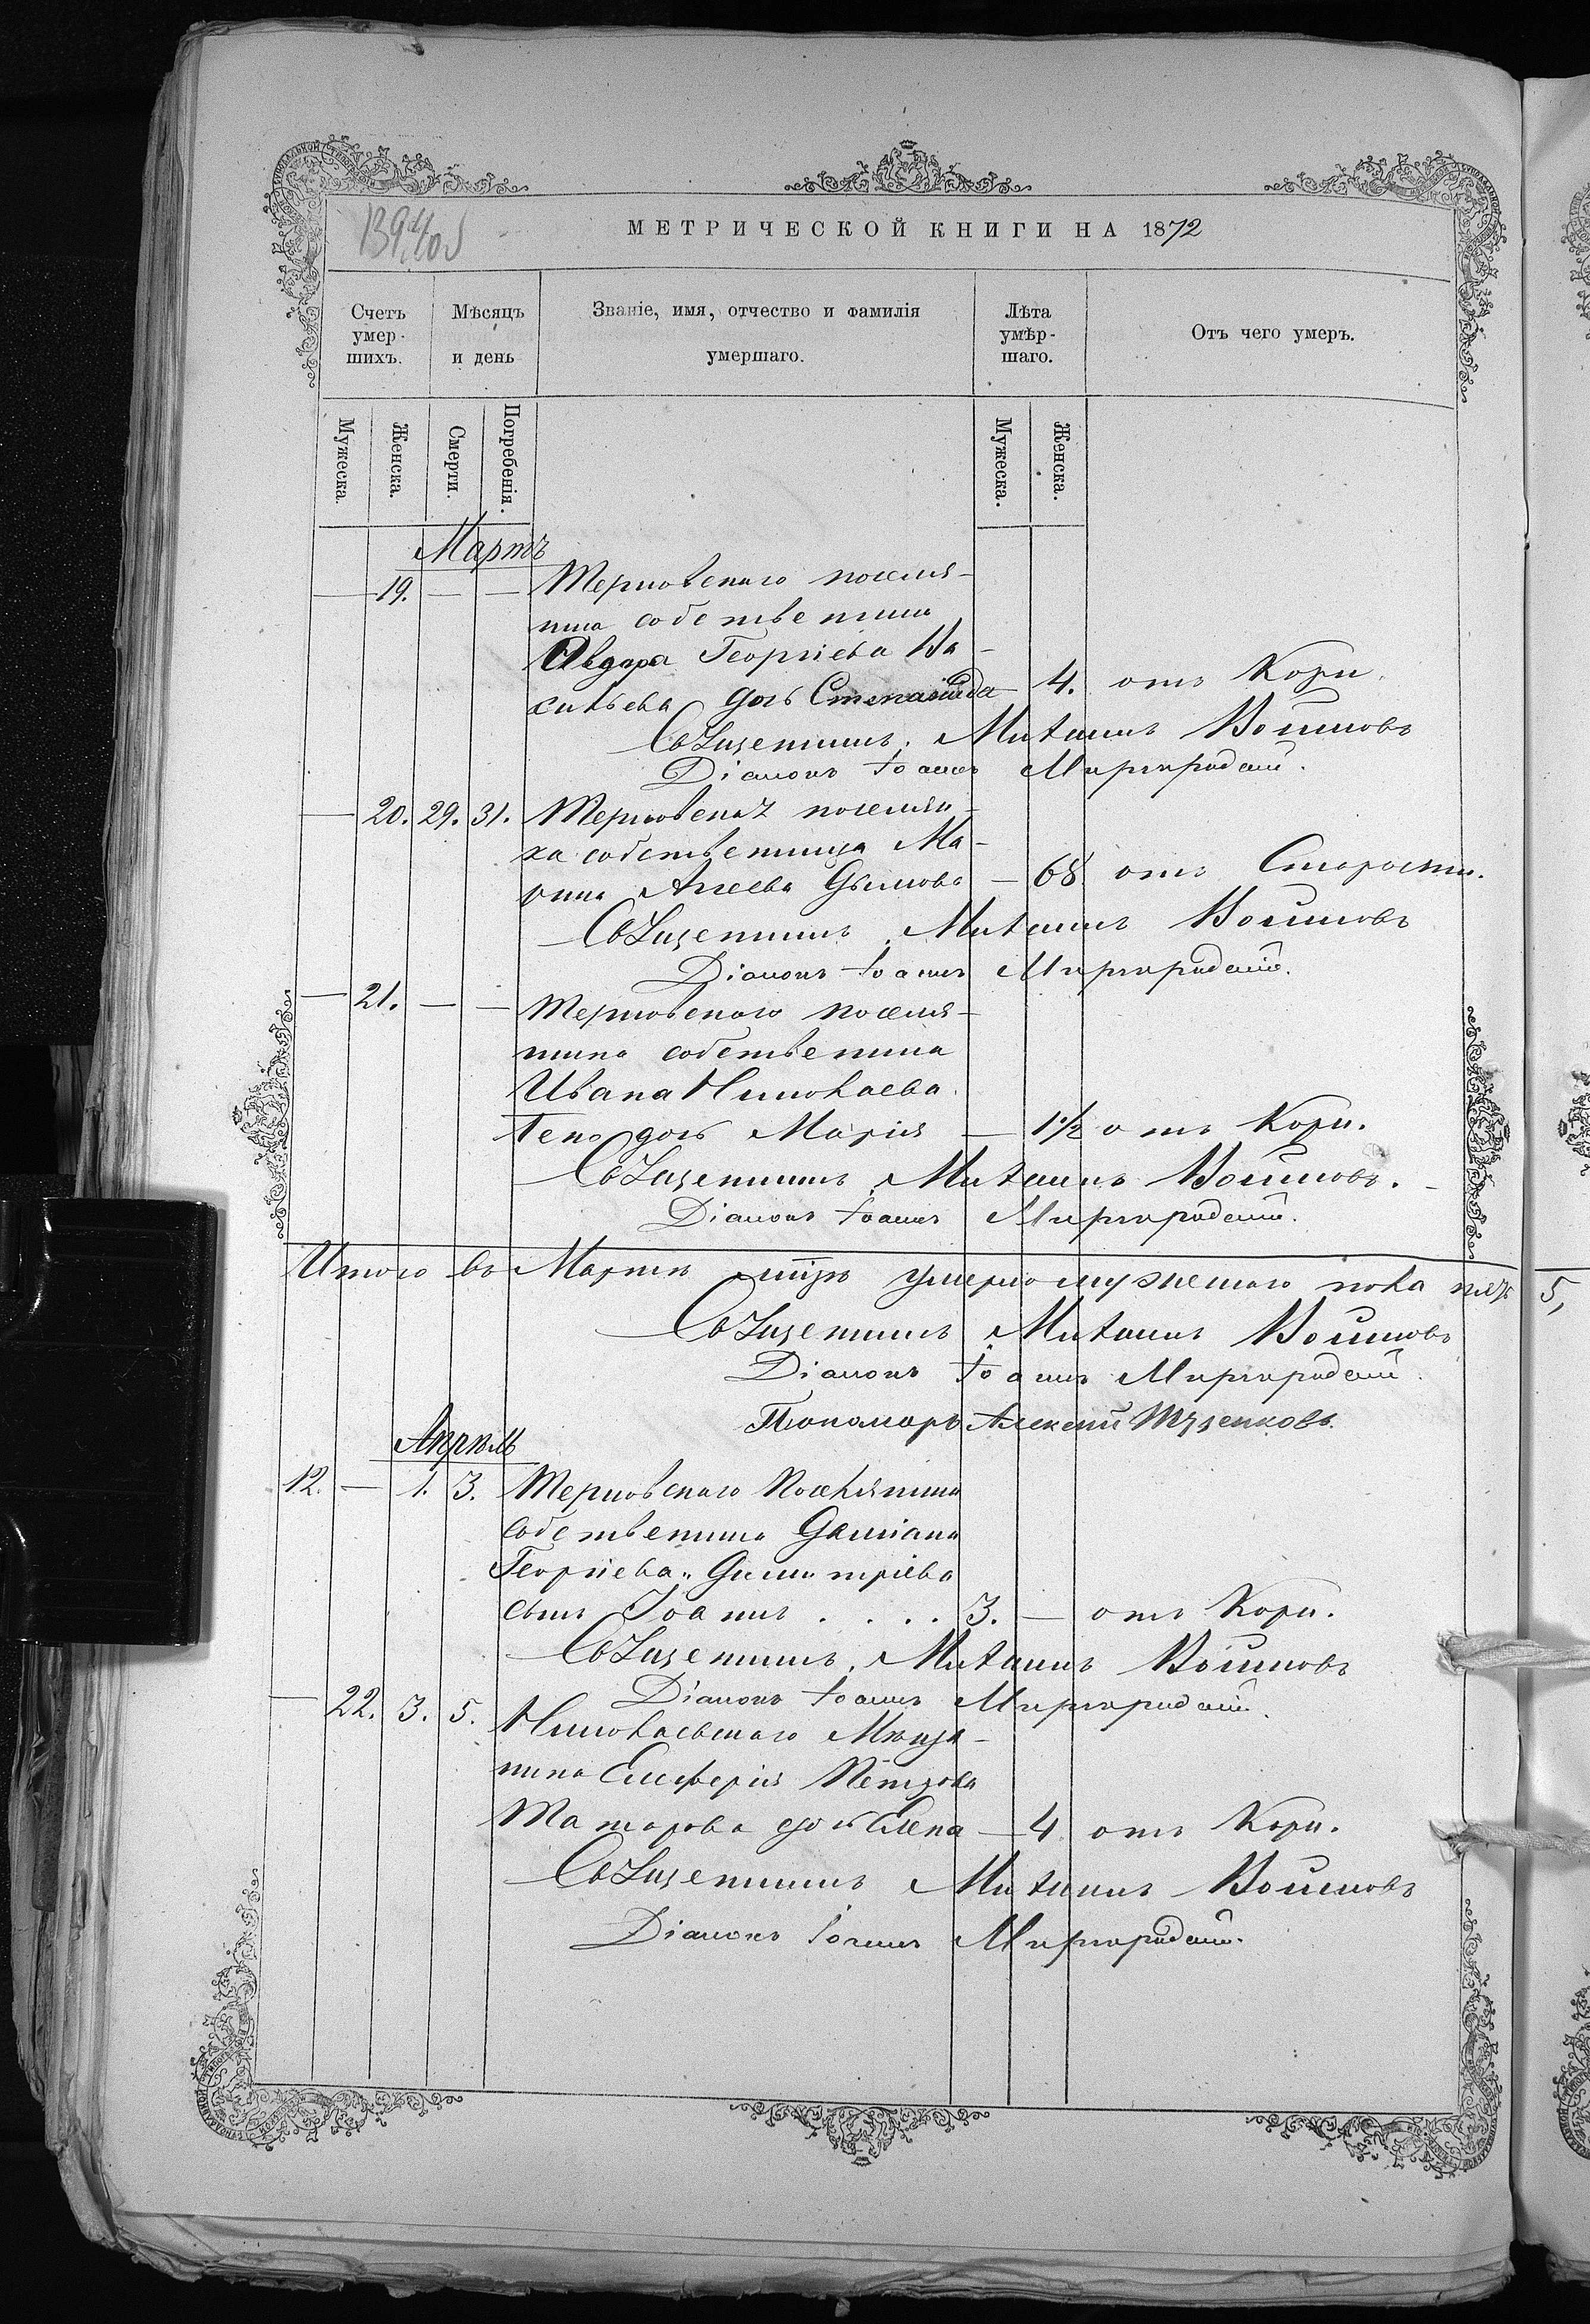 МЕТРИЧЕСКОЙ КНИГИ НА 1872
Счетъ умер-шихъ.
Мѣсяцъ и день
Званіе, имя, отчество и фамилія умершаго.
Лѣта умѣр-шаго.
Отъ чего умеръ.
Мужеска.
Женска.
Смерти.
Погребенія.
Мужеска.
Женска.
Мартъ
— 19. — — Терновскаго поселя-
нина собственника
Георгіева Ва-
сильева дочь Степанида — 4. отъ Кори.
Священникъ Михаилъ Войновъ
Діаконъ Іоаннъ Миргородскій.
— 20. 29. 31. Терновская поселян-
ка собственница Ма-
рина Агеева Дымова — 68 отъ Старости.
Священникъ Михаилъ Войновъ
Діаконъ Іоаннъ Миргородскій.
— 21. — — Терновскаго поселя-
нина собственника
Ивана Николаева
дочь Марія — 1 1/2 отъ Кори.
Священникъ Михаилъ Войновъ.
Діаконъ Іоаннъ Миргородскій.
Итого въ Мартѣ умерло мужескаго пола 5,
Священникъ Михаилъ Войновъ
Діаконъ Іоаннъ Миргородскій.
Пономарь Алексій
Апрѣль
12. — 1. 3. Терновскаго Поселянина
собственника Даміана
Георгіева Димитріева
сынъ Іоаннъ . . . . 3. — отъ Кори.
Священникъ Михаилъ Войновъ
Діаконъ Іоаннъ Миргородскій.
— 22. 3. 5. Николаевскаго Мѣща-
нина Елеферія Петрова
Татарова дочь Елена — 4 отъ Кори.
Священникъ Михаилъ Войновъ
Діаконъ Іоаннъ Миргородскій.